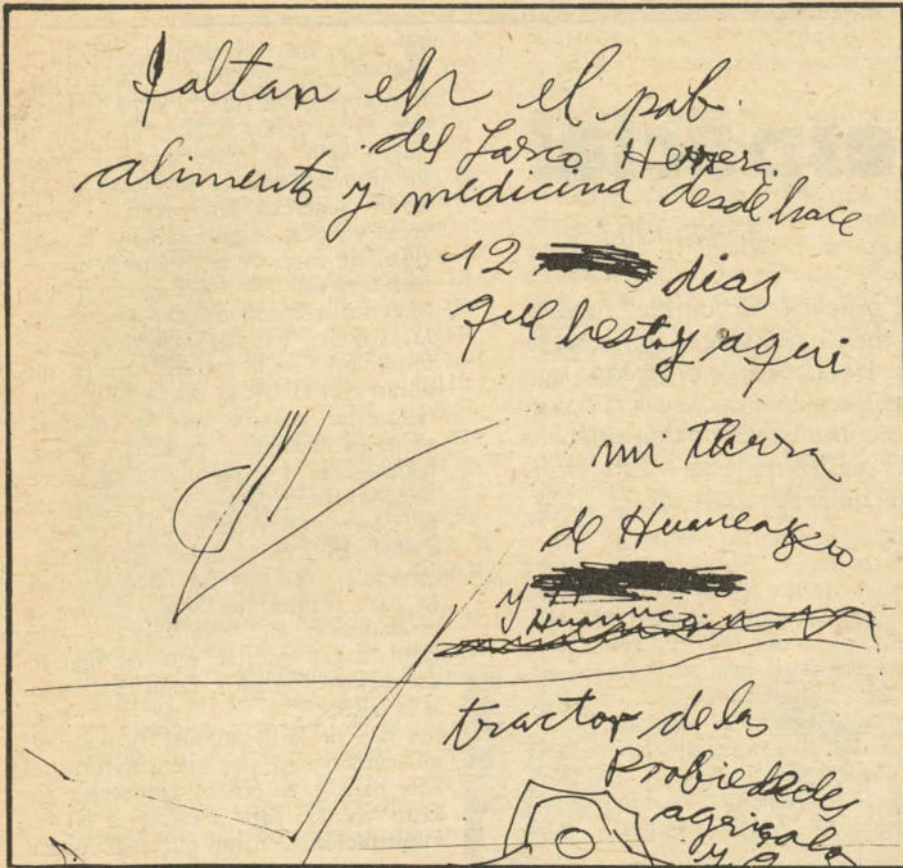 faltan en el pab.
del Larco Herrera.
alimento y medicina desde hace
12 dias
que hestoy aqui
mi tierra
de
y
tractor de las
Probiedades
agricola
y